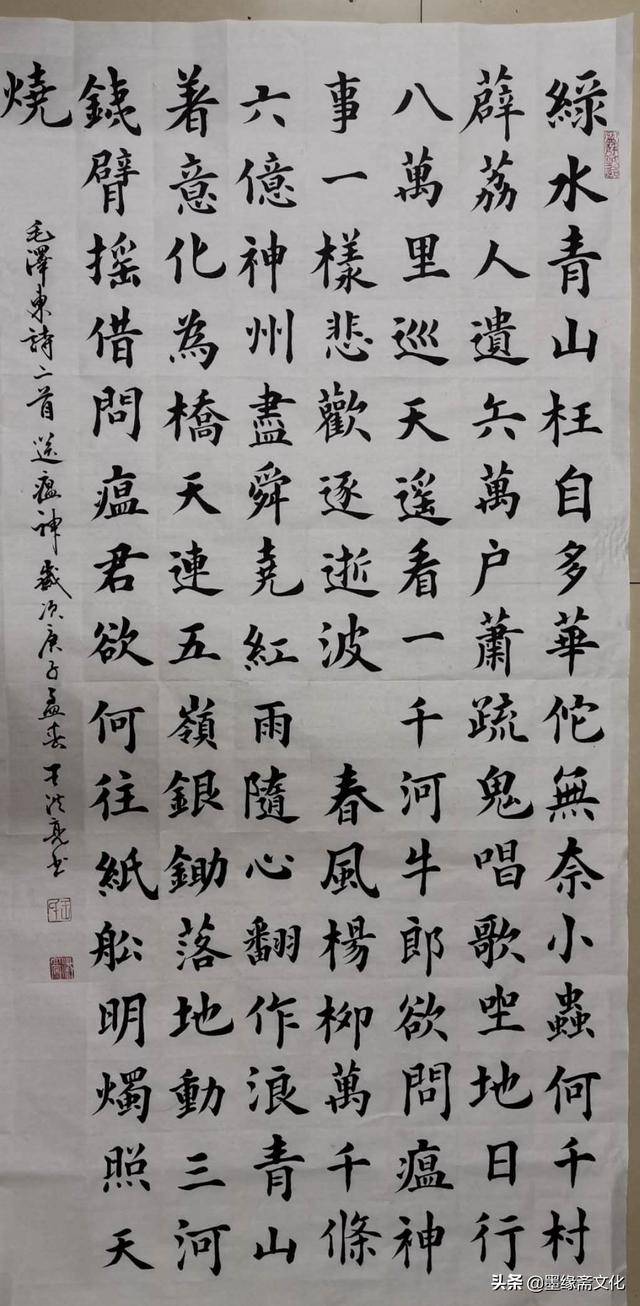 綠水青山枉自多華佗無奈小蟲何千村
薜荔人遺矢萬户蕭疏鬼唱歌坐地日行
八萬里巡天遥看一千河牛郎欲問瘟神
事一樣悲歡逐逝波 春風楊柳萬千條
六億神州盡舜堯紅雨隨心翻作浪青山
着意化為橋天連五嶺銀鋤落地動三河
鐵臂摇借問瘟君欲何往紙船明燭照天
燒
毛澤東詩二首送瘟神歲次庚子孟春 洪亮書
头条 @墨缘斋文化